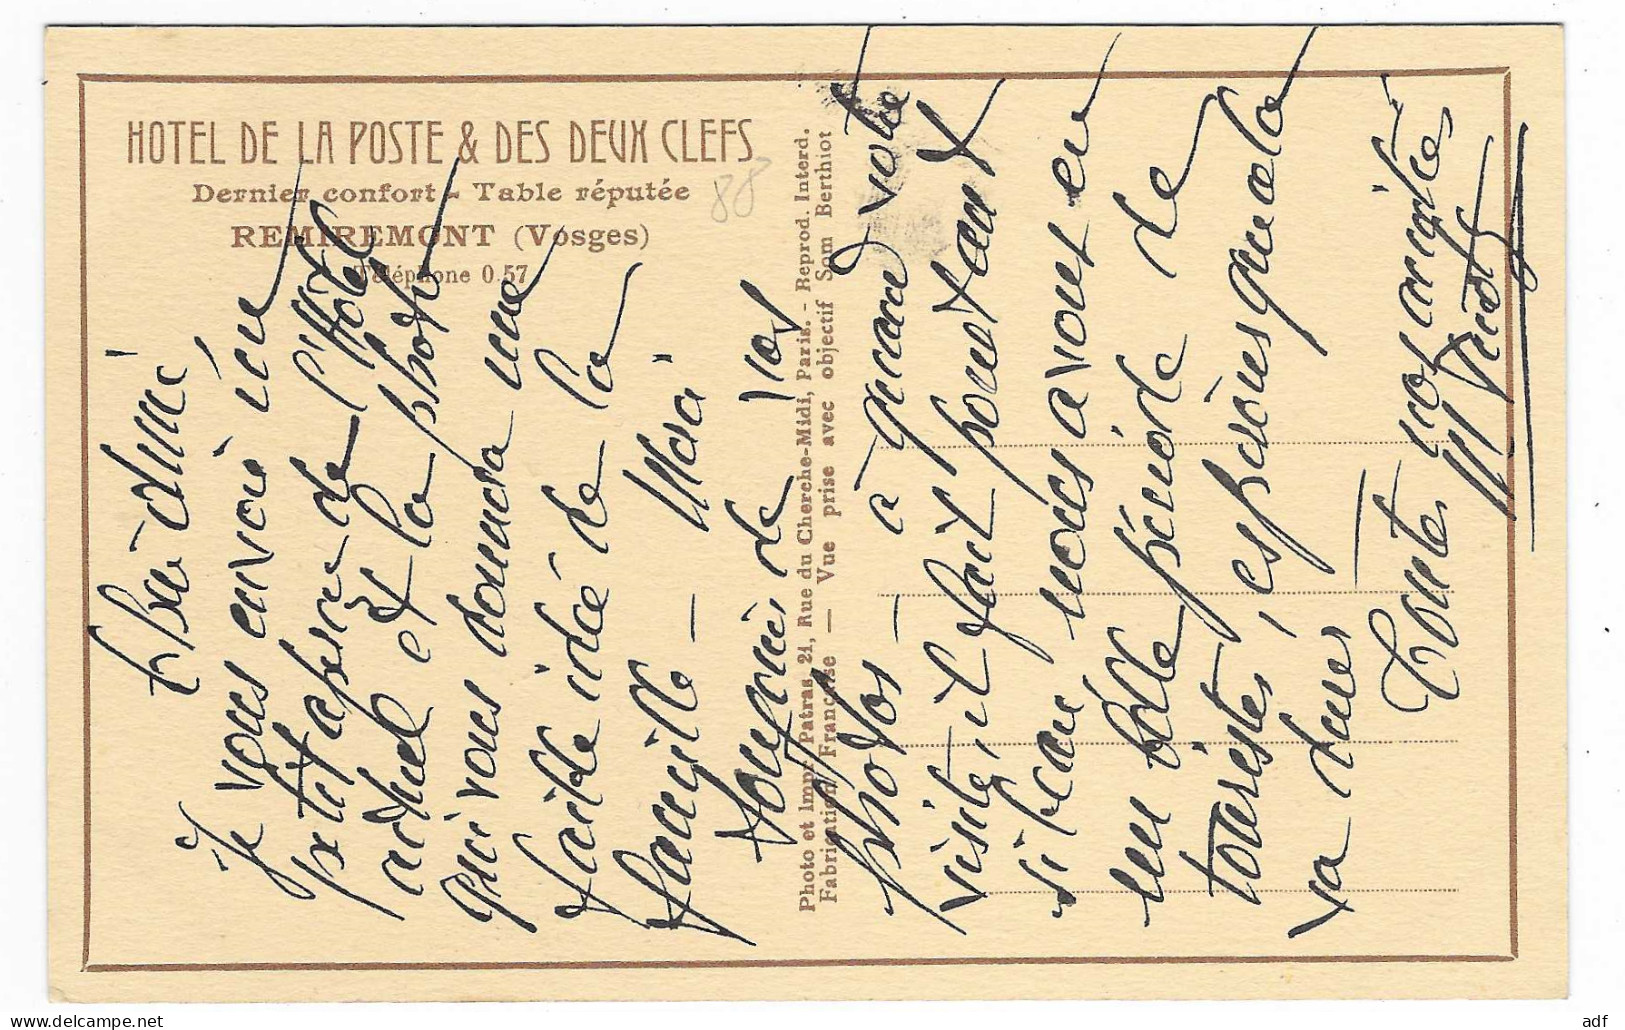 HOTEL DE LA POSTE & DES DEUX CLEFS
Dernier confort - Table réputée
REMIREMONT (Vosges)
Téléphone 0.57
88
Photo et Impr. Patras, 21, Rue du Cherche-Midi, Paris. - Reprod. Interd.
Fabrication Française — Vue prise avec objectif Som Berthiot
Je vous envoie un
petit aperçu de l'Hôtel
actuel et la photo
qui vous donnera une
faible idée de la
famille — Merci
toujours de vos
photos — à quand votre
visite, il fait pourtant
si beau nous avons eu
une belle période de
touristes, espérons que cela
va durer
Toute vos amitiés